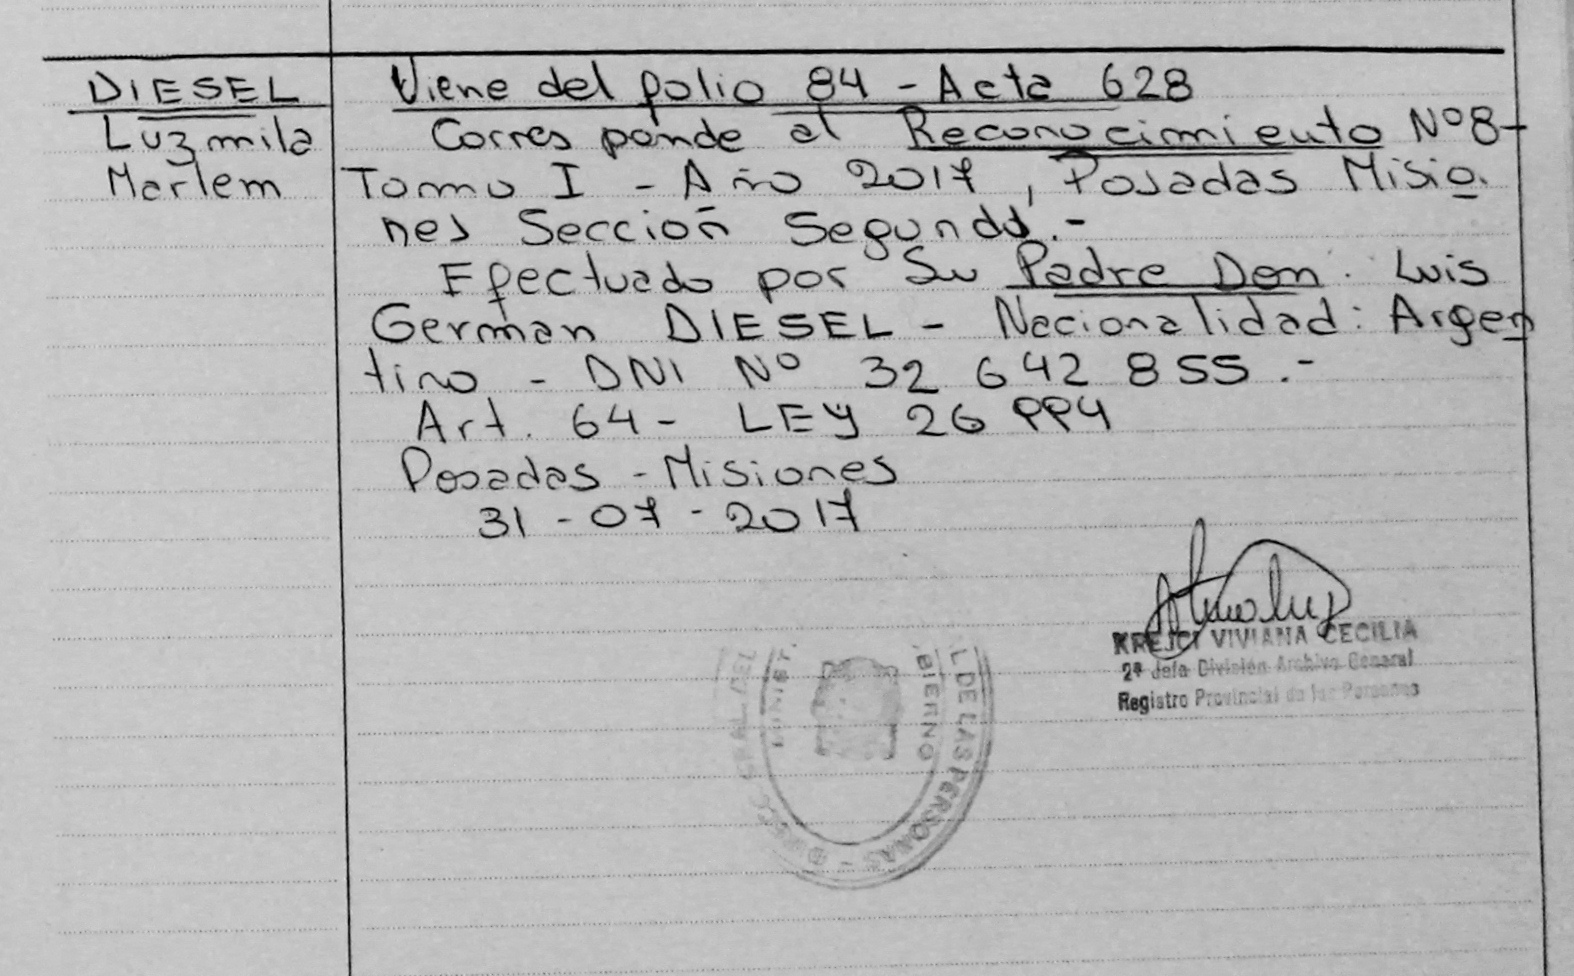 DIESEL
Luzmila
Marlem
Viene del folio 84 - Acta 628
Corresponde al Reconocimiento Nº 8-
Tomo I - Año 2017, Posadas Misio-
nes Sección Segunda.-
Efectuado por Su Padre Don: Luis
German DIESEL - Nacionalidad: Argen
tino - DNI Nº 32 642 855.-
Art. 64 - LEY 26 994
Posadas - Misiones
31-07-2017
KREJCI VIVIANA CECILIA
2ª Jefa División Archivo General
Registro Provincial de las Personas
L DE LAS PERSONAS
BIERNO
MINIST.
RAL DEL